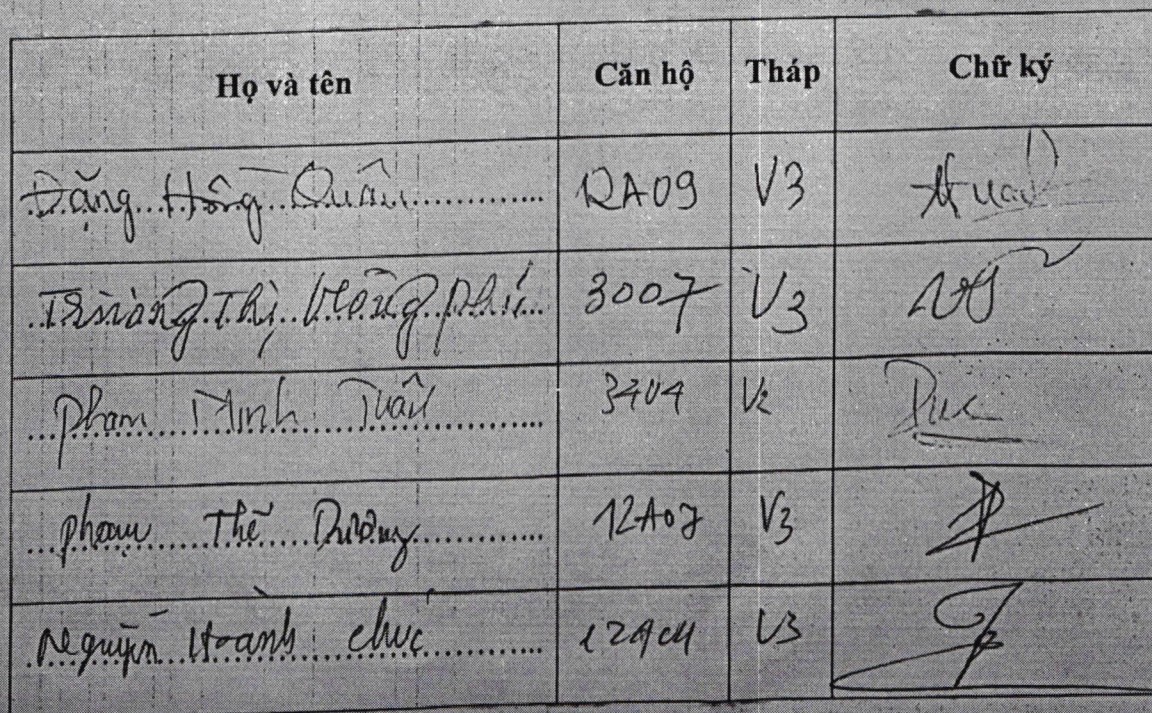 Họ và tên Căn hộ Tháp Chữ ký
Đặng Hồng Quân 12A09 V3
Thị Hồng 3007 V3
Phạm Minh Tuấn 3404 V2
Phạm Thế Dương 12A07 V3
Nguyễn Hoành Chức 12A04 V3